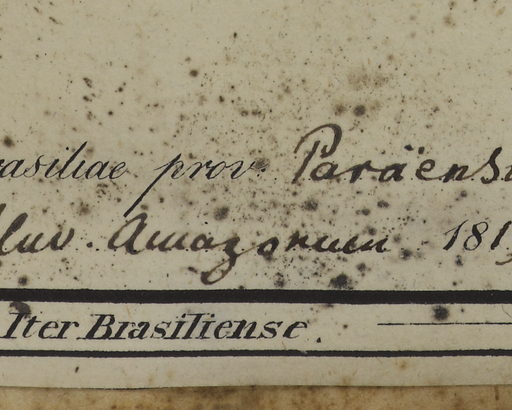 rasiliae prov. Paraëns
fluv. Amazonum 181
Iter Brasiliense.